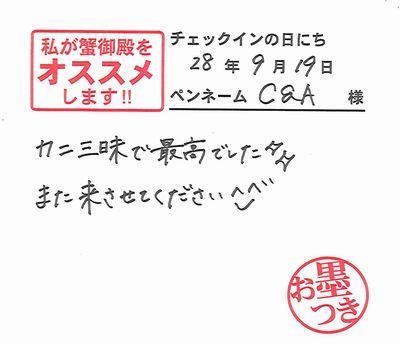 私が蟹御殿を
オススメ
します!!
チェックインの日にち
28年9月19日
ペンネーム C&A 様
カニ三昧で最高でした
また来させてください
お墨つき